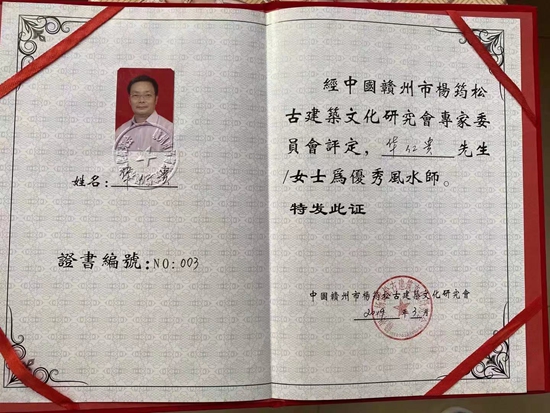 姓名：華仁贵
證書編號：NO：003
經中國贛州市楊筠松
古建築文化研究會專家委
員會評定，華仁贵 先生
/女士爲優秀風水師。
特发此证
中國贛州市楊筠松古建築文化研究會
2019年3月